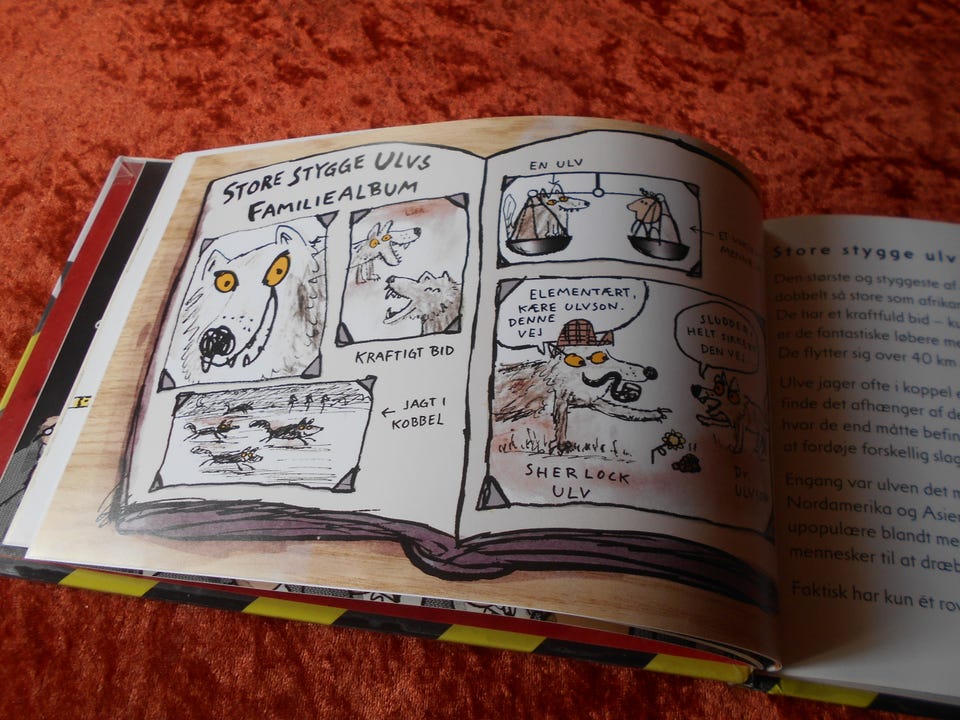 STORE STYGGE ULVS
FAMILIEALBUM
KRAFTIGT BID
← JAGT I
KOBBEL
EN ULV
← ET
ELEMENTÆRT,
KÆRE ULVSON.
DENNE
VEJ
SLUDDER,
HELT SIKKERT
DEN VEJ
SHERLOCK
ULV
DR.
Store stygge ulv
Den største og styggeste af
dobbelt så store som afrikan
De har et kraftfuld bid – ku
er de fantastiske løbere me
De flytter sig over 40 km
Ulve jager ofte i koppel e
finde det afhænger af de
hvor de end måtte befin
at fordøje forskellig slag
Engang var ulven det m
Nordamerika og Asien
upopulære blandt me
mennesker til at dræb
Faktisk har kun ét rov